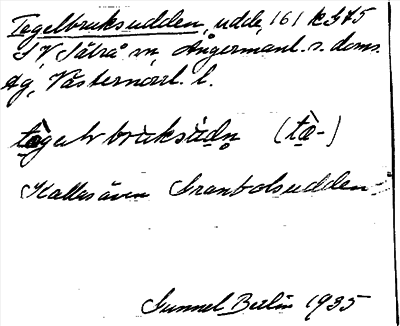 Tegelbruksudden, udde, 161 k S 45
S V Sätra m, Ångermanl. s. doms.
ag, Västernorrl. l.
tægəlbruksùdn (tæ̀-)
Kallas även Granbolsudden.
Gunnel Berlin 1935